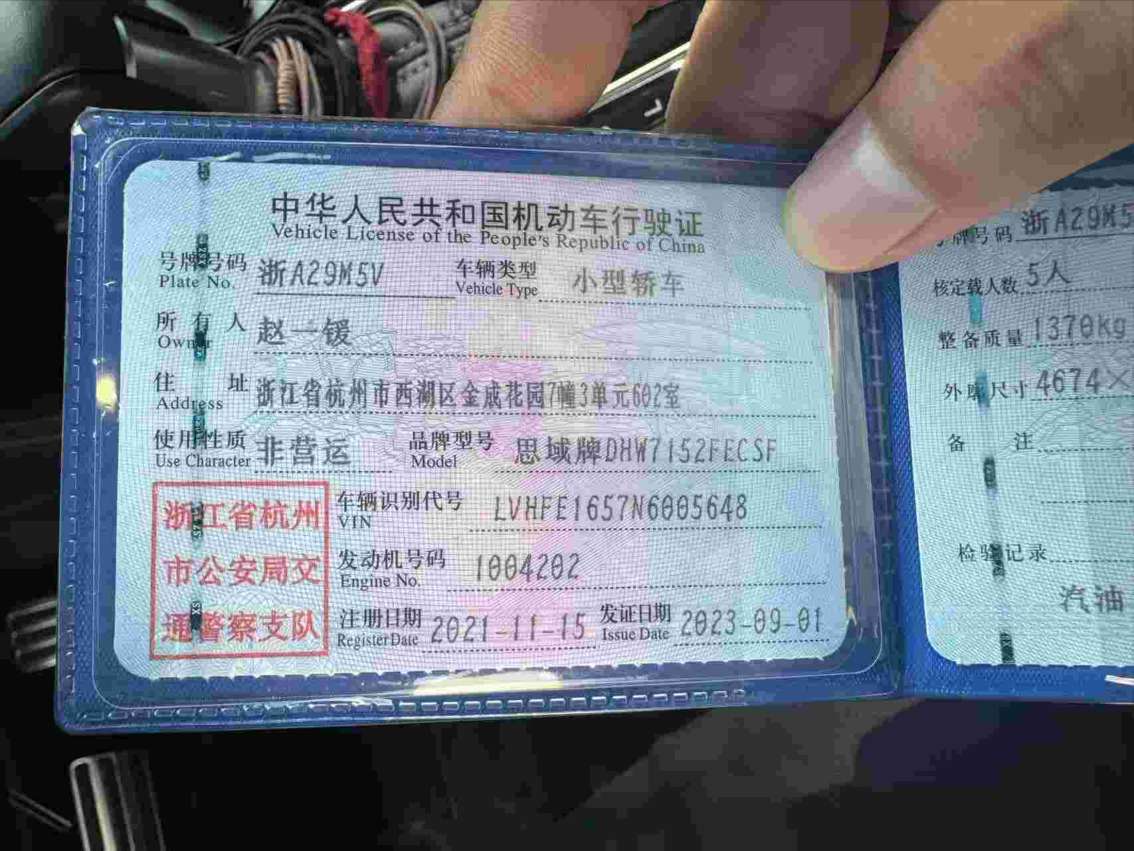 中华人民共和国机动车行驶证
Vehicle License of the People's Republic of China
号牌号码 浙A29M5V 车辆类型 小型轿车
Plate No. Vehicle Type
所有人 赵一锾
Owner
住址 浙江省杭州市西湖区金成花园7幢3单元602室
Address
使用性质 非营运 品牌型号 思域牌DHW7152FECSF
Use Character Model
浙江省杭州
市公安局交
通警察支队
车辆识别代号 LVHFE1657N6005648
VIN
发动机号码 1004202
Engine No.
注册日期 2021-11-15 发证日期 2023-09-01
Register Date Issue Date
号牌号码 浙A29M5
核定载人数 5人
整备质量 1370kg
外廓尺寸 4674×
备注
检验记录
汽油